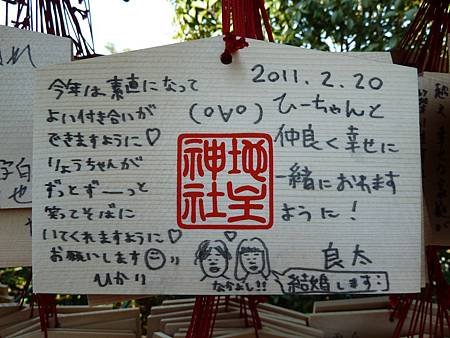 2011.2.20
ひーちゃんと
仲良く幸せに
一緒におれます
ように!
良太
結婚します
今年は素直になって
よい付き合いが
できますように♡
りょうちゃんが
ずっとずーっと
笑ってそばに
いてくれますように♡
お願いします
ひかり
地主神社
なかよし!!